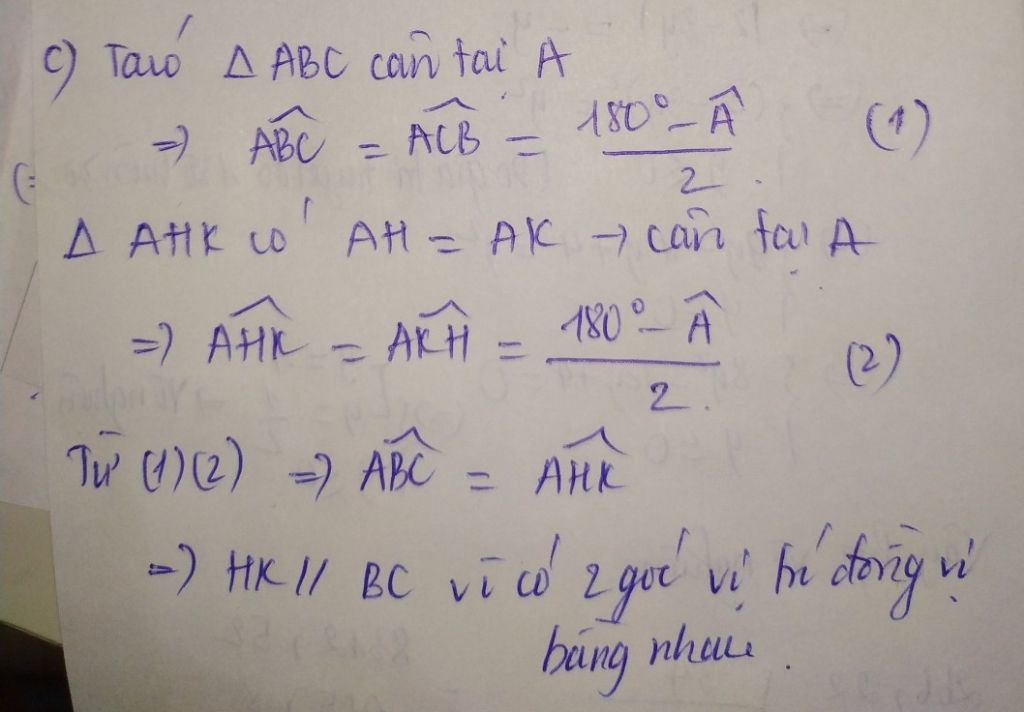 c) Ta có Δ ABC cân tại A
⇒ \widehat{ABC} = \widehat{ACB} = \frac{180° - \widehat{A}}{2}. (1)
Δ AHK có AH = AK → cân tại A
⇒ \widehat{AHK} = \widehat{AKH} = \frac{180° - \widehat{A}}{2}. (2)
Từ (1) (2) ⇒ \widehat{ABC} = \widehat{AHK}
⇒ HK // BC vì có 2 góc vị trí đồng vị
bằng nhau.